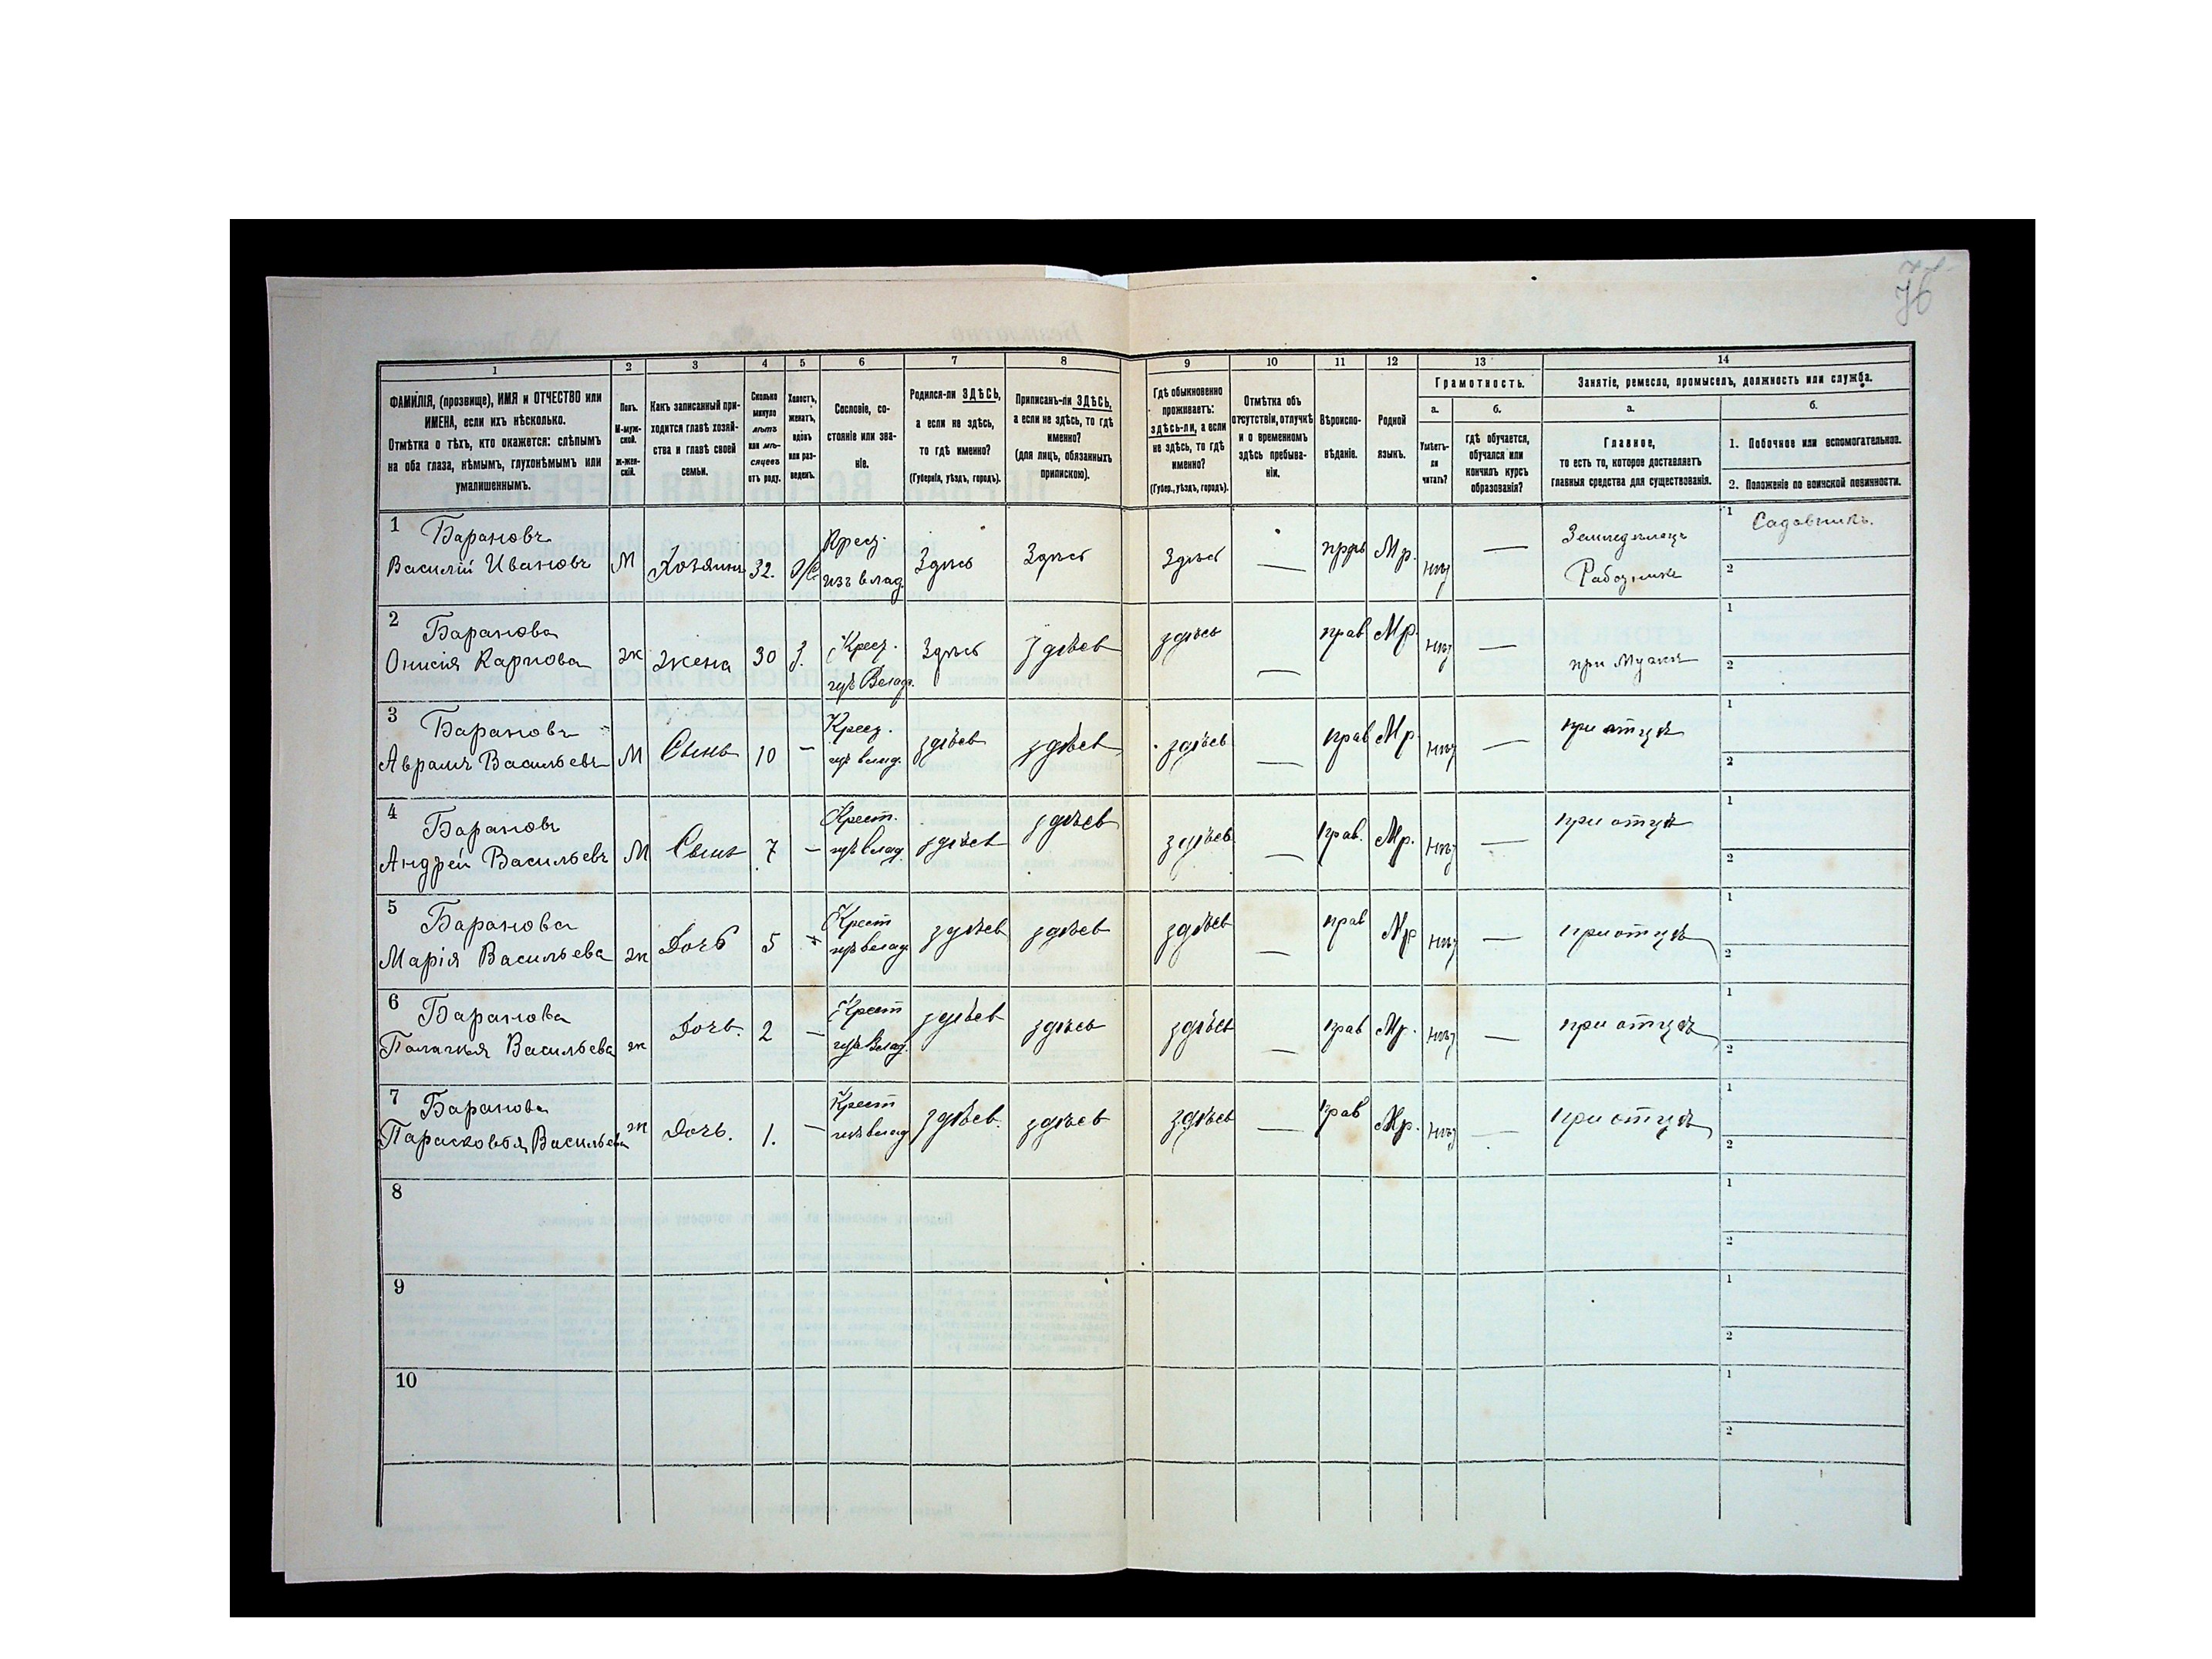 76
1 2 3 4 5 6 7 8 9 10 11 12 13 14
ФАМИЛІЯ, (прозвище), ИМЯ и ОТЧЕСТВО или
ИМЕНА, если ихъ нѣсколько.
Отмѣтка о тѣхъ, кто окажется: слѣпымъ
на оба глаза, нѣмымъ, глухонѣмымъ или
умалишеннымъ.
Полъ.
М-муж-
ской.
ж-жен-
скій.
Какъ записанный при-
ходится главѣ хозяй-
ства и главѣ своей
семьи.
Сколько
минуло
лѣтъ
или мѣ-
сяцевъ
отъ роду.
Холостъ,
женатъ,
вдовъ
или раз-
веденъ.
Сословіе, со-
стояніе или зва-
ніе.
Родился-ли ЗДѢСЬ,
а если не здѣсь,
то гдѣ именно?
(Губернія, уѣздъ, городъ).
Приписанъ-ли ЗДѢСЬ,
а если не здѣсь, то гдѣ
именно?
(для лицъ, обязанныхъ
припискою).
Гдѣ обыкновенно
проживаетъ:
здѣсь-ли, а если
не здѣсь, то гдѣ
именно?
(Губер., уѣздъ, городъ).
Отмѣтка объ
отсутствіи, отлучкѣ
и о временномъ
здѣсь пребыва-
ніи.
Вѣроиспо-
вѣданіе.
Родной
языкъ.
Грамотность.
а.
Умѣетъ-
ли
читать?
б.
гдѣ обучается,
обучался или
кончилъ курсъ
образованія?
Занятіе, ремесло, промыселъ, должность или служба.
а.
Главное,
то есть то, которое доставляетъ
главныя средства для существованія.
б.
1. Побочное или вспомогательное.
2. Положеніе по воинской повинности.
1 Барановъ
Василій Ивановъ М Хозяинъ 32. Крес. изъ влад. Здѣсь Здѣсь Здѣсь — Мр. нѣтъ — Земледѣлецъ Работникъ 1 Садовникъ. 2
2 Баранова
Онисія Карпова ж жена 30 З. Крес. изъ Влад. Здѣсь здѣсь здѣсь — прав Мр. нѣтъ — при Мужѣ 1 2
3 Барановъ
Аврамъ Васильевъ М Сынъ 10 — Крес. изъ влад. здѣсь здѣсь здѣсь — прав Мр. нѣтъ — при отцѣ 1 2
4 Барановъ
Андрей Васильевъ М Сынъ 7 — Крест. изъ влад. здѣсь здѣсь здѣсь — прав. Мр. нѣтъ — при отцѣ 1 2
5 Баранова
Марія Васильева ж Дочь 5 — Крест изъ влад здѣсь здѣсь здѣсь — прав Мр нѣтъ — при отцѣ 1 2
6 Баранова
Палагія Васильева ж Дочь. 2 — Крест изъ Влад. здѣсь здѣсь здѣсь — прав Мр. нѣтъ — при отцѣ 1 2
7 Баранова
Парасковья Васильева ж Дочь. 1. — Крест изъ влад здѣсь. здѣсь здѣсь — прав Мр. нѣтъ — при отцѣ 1 2
8 1 2
9 1 2
10 1 2